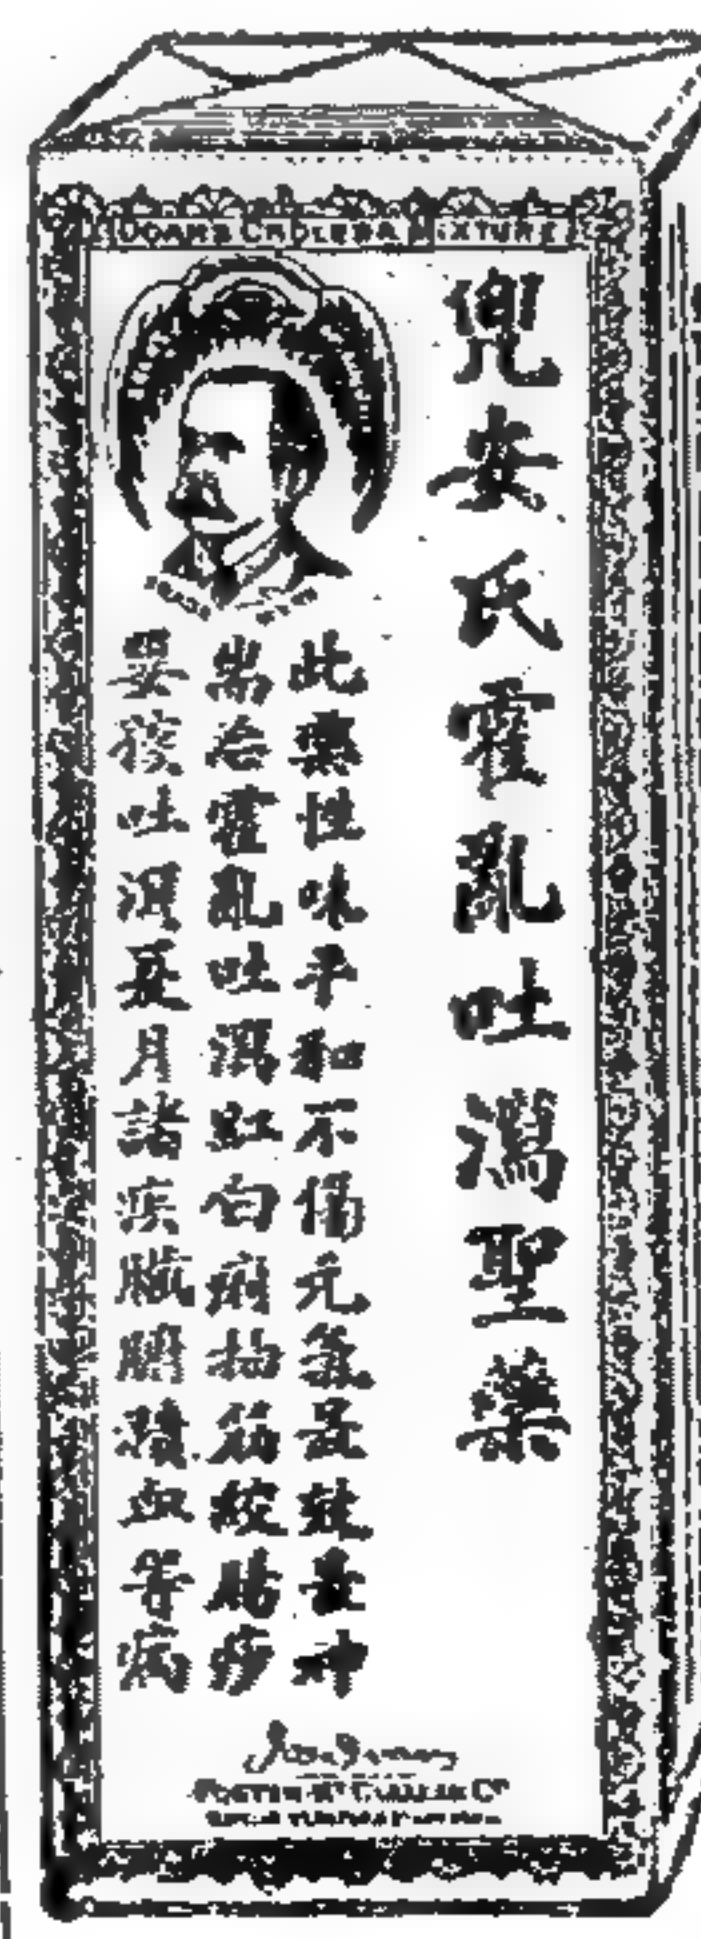 DOANS CHOLERA MIXTURE
兜安氏霍亂吐瀉聖藥
此藥性味平和不傷元氣最效最神
耑治霍亂吐瀉紅白痢抽筋絞腸痧
嬰孩吐瀉夏月諸疾臟腑積血等病
FOSTER McCLELLAN Co